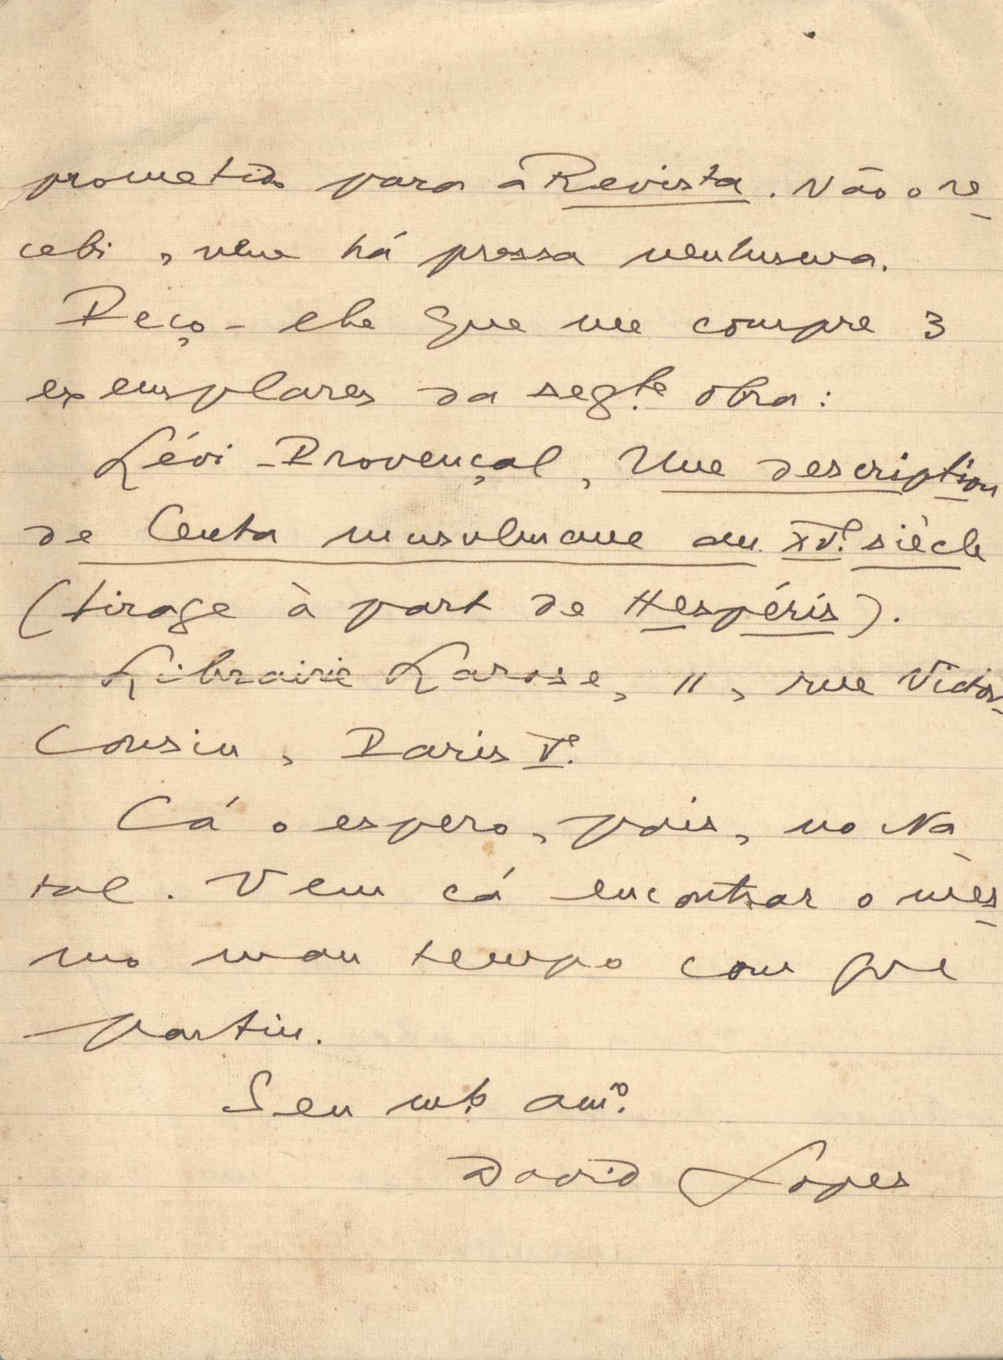 prometido para a Revista. Não o re-
cebi, nem há pressa nenhuma.
Peço-lhe que me compre 3
exemplares da segte obra:
Lévi-Provençal, Une description
de Ceuta musulmane au XVe. siècle
(tirage à part de Hespéris).
Librairie Larose, 11, rue Victor-
Cousin, Paris Ve.
Cá o espero, pois, no Na-
tal. Vem cá encontrar o mes-
mo mau tempo com que
partiu.
Seu mto amo.
David Lopes